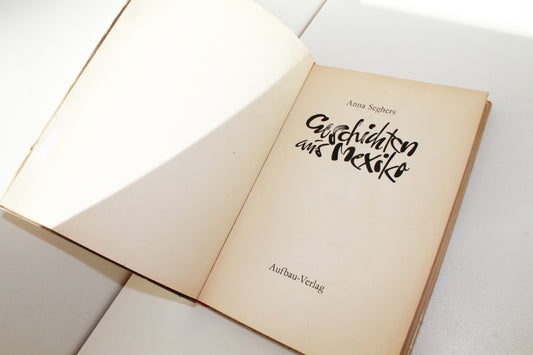 Anna Seghers
Geschichten
aus Mexiko
Aufbau-Verlag